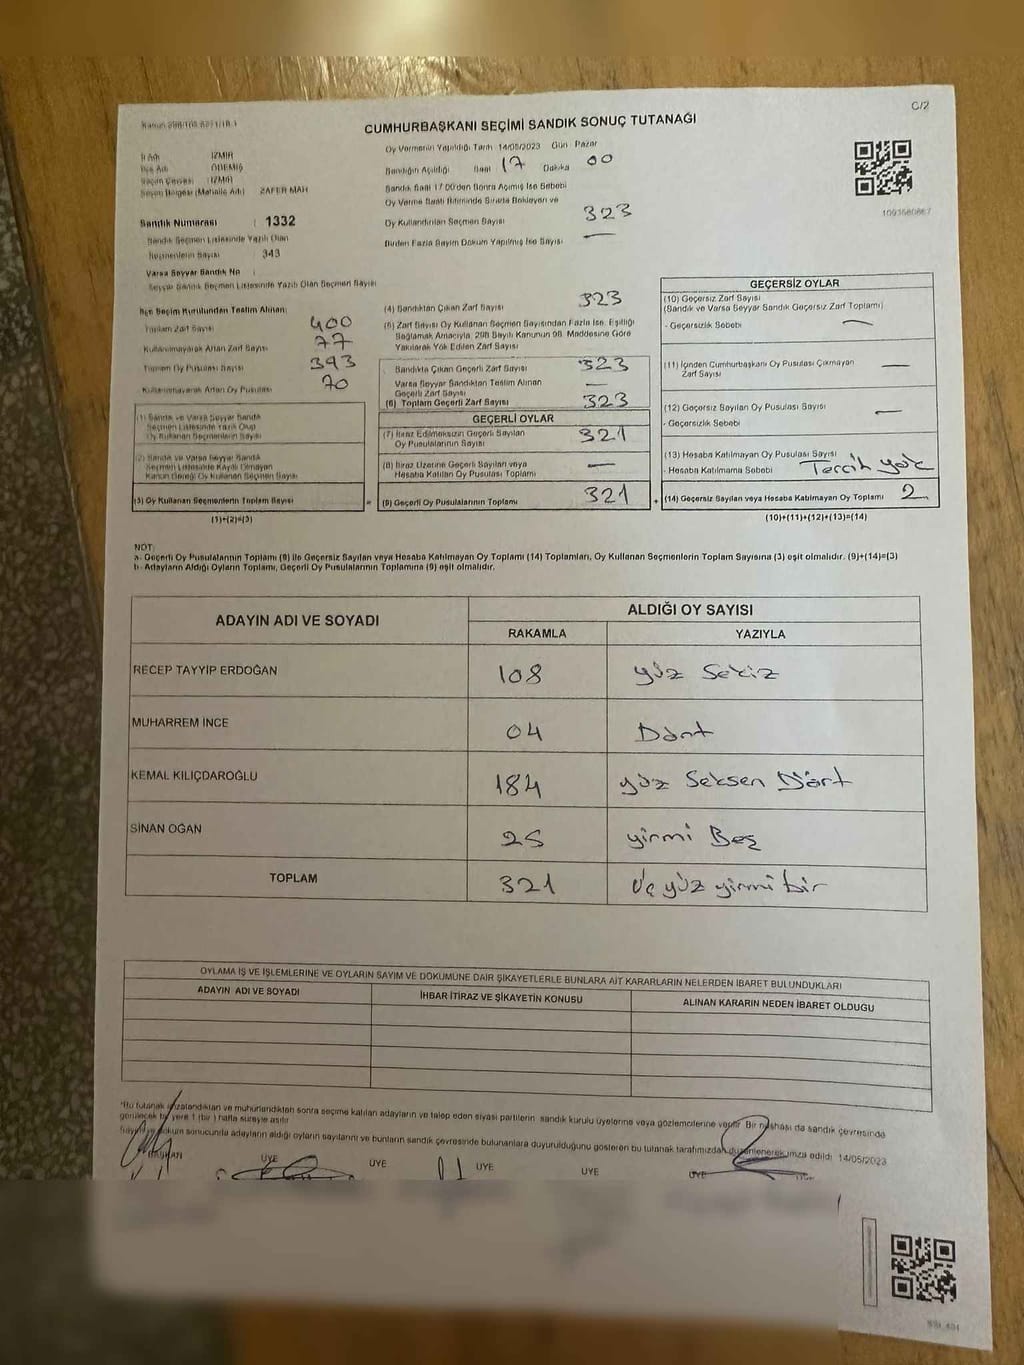 C/2
CUMHURBAŞKANI SEÇİMİ SANDIK SONUÇ TUTANAĞI
İl Adı İZMİR
İlçe Adı ÖDEMİŞ
Seçim Çevresi İZMİR
Seçim Bölgesi (Mahalle Adı) ZAFER MAH
Sandık Numarası : 1332
Sandık Seçmen Listesinde Yazılı Olan
Seçmenlerin Sayısı : 343
Varsa Seyyar Sandık No :
Seyyar Sandık Seçmen Listesinde Yazılı Olan Seçmen Sayısı
Oy Vermenin Yapıldığı Tarih 14/05/2023 Gün Pazar
Sandığın Açıldığı Saat 17 Dakika 00
Sandık Saat 17:00'den Sonra Açılmış İse Sebebi
Oy Verme Saati Bitiminde Sırada Bekleyen ve
Oy Kullandırılan Seçmen Sayısı 323
Birden Fazla Sayım Döküm Yapılmış İse Sayısı —
İlçe Seçim Kurulundan Teslim Alınan
Toplam Zarf Sayısı 400
Kullanılmayarak Artan Zarf Sayısı 77
Toplam Oy Pusulası Sayısı 393
Kullanılmayarak Artan Oy Pusulası 70
(1) Sandık ve Varsa Seyyar Sandık
Seçmen Listesinde Yazılı Olup
Oy Kullanan Seçmenlerin Sayısı
(2) Sandık ve Varsa Seyyar Sandık
Seçmen Listesinde Kayıtlı Olmayan
Kanun Gereği Oy Kullanan Seçmen Sayısı
(3) Oy Kullanan Seçmenlerin Toplam Sayısı =
(1)+(2)=(3)
(4) Sandıktan Çıkan Zarf Sayısı 323
(5) Zarf Sayısı Oy Kullanan Seçmen Sayısından Fazla İse, Eşitliği
Sağlamak Amacıyla, 298 Sayılı Kanunun 98. Maddesine Göre
Yakılarak Yok Edilen Zarf Sayısı
Sandıkta Çıkan Geçerli Zarf Sayısı 323
Varsa Seyyar Sandıktan Teslim Alınan
Geçerli Zarf Sayısı —
(6) Toplam Geçerli Zarf Sayısı 323
GEÇERLİ OYLAR
(7) İtiraz Edilmeksizin Geçerli Sayılan
Oy Pusulalarının Sayısı 321
(8) İtiraz Üzerine Geçerli Sayılan veya
Hesaba Katılan Oy Pusulaları Toplamı —
(9) Geçerli Oy Pusulalarının Toplamı 321 +
GEÇERSİZ OYLAR
(10) Geçersiz Zarf Sayısı
(Sandık ve Varsa Seyyar Sandık Geçersiz Zarf Toplamı)
- Geçersizlik Sebebi —
(11) İçinden Cumhurbaşkanı Oy Pusulası Çıkmayan
Zarf Sayısı —
(12) Geçersiz Sayılan Oy Pusulası Sayısı —
- Geçersizlik Sebebi
(13) Hesaba Katılmayan Oy Pusulası Sayısı
- Hesaba Katılmama Sebebi Tercih yok
(14) Geçersiz Sayılan veya Hesaba Katılmayan Oy Toplamı 2
(10)+(11)+(12)+(13)=(14)
NOT:
a- Geçerli Oy Pusulalarının Toplamı (9) ile Geçersiz Sayılan veya Hesaba Katılmayan Oy Toplamı (14) Toplamları, Oy Kullanan Seçmenlerin Toplam Sayısına (3) eşit olmalıdır. (9)+(14)=(3)
b- Adayların Aldığı Oyların Toplamı, Geçerli Oy Pusulalarının Toplamına (9) eşit olmalıdır.
ADAYIN ADI VE SOYADI ALDIĞI OY SAYISI
RAKAMLA YAZIYLA
RECEP TAYYİP ERDOĞAN 108 yüz Sekiz
MUHARREM İNCE 04 Dört
KEMAL KILIÇDAROĞLU 184 yüz Seksen Dört
SİNAN OĞAN 25 yirmi Beş
TOPLAM 321 Üç yüz yirmi bir
OYLAMA İŞ VE İŞLEMLERİNE VE OYLARIN SAYIM VE DÖKÜMÜNE DAİR ŞİKAYETLERLE BUNLARA AİT KARARLARIN NELERDEN İBARET BULUNDUKLARI
ADAYIN ADI VE SOYADI İHBAR İTİRAZ VE ŞİKAYETİN KONUSU ALINAN KARARIN NEDEN İBARET OLDUĞU
*Bu tutanak imzalandıktan ve mühürlendikten sonra seçime katılan adayların ve talep eden siyasi partilerin sandık kurulu üyelerine veya gözlemcilerine verilir. Bir nüshası da sandık çevresinde
görülecek bir yere 1 (bir) hafta süreyle asılır
Sayım ve döküm sonucunda adayların aldığı oyların sayılarını ve bunların sandık çevresinde bulunanlara duyurulduğunu gösteren bu tutanak tarafımızdan düzenlenerek imza edildi. 14/05/2023
BAŞKAN ÜYE ÜYE ÜYE ÜYE ÜYE